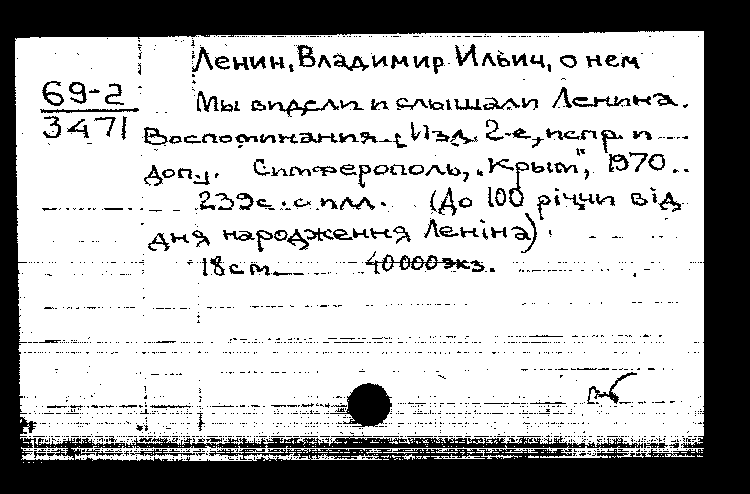 Ленин, Владимир Ильич, о нем
69-2
3471
Мы видели и слышали Ленина.
Воспоминания. [Изд. 2-е, испр. и
доп.]. Симферополь, „Крым", 1970..
239с. с илл. (До 100 річчи від
дня народження Леніна).
18 см. 40000 экз.